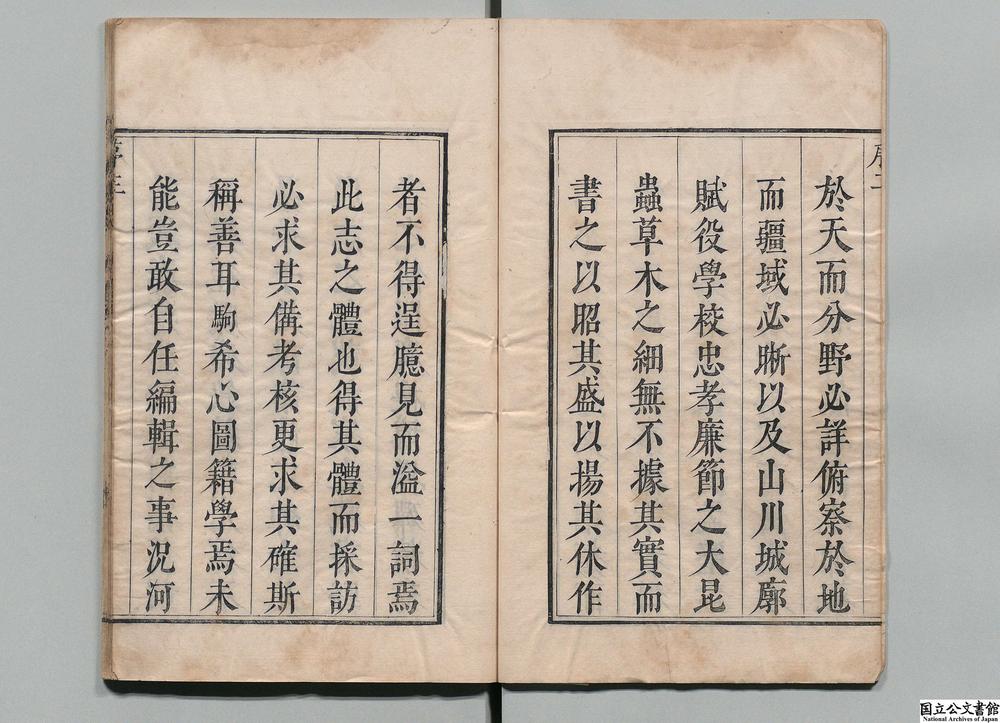 於天而分野必詳俯察於地
而疆域必晰以及山川城廓
賦役學校忠孝廉節之大昆
蟲草木之細無不據其實而
書之以昭其盛以揚其休作
者不得逞臆見而溢一詞焉
此志之體也得其體而採訪
必求其備考核更求其確斯
稱善耳駒希心圖籍學焉未
能豈敢自任編輯之事況河
国立公文書館
National Archives of Japan